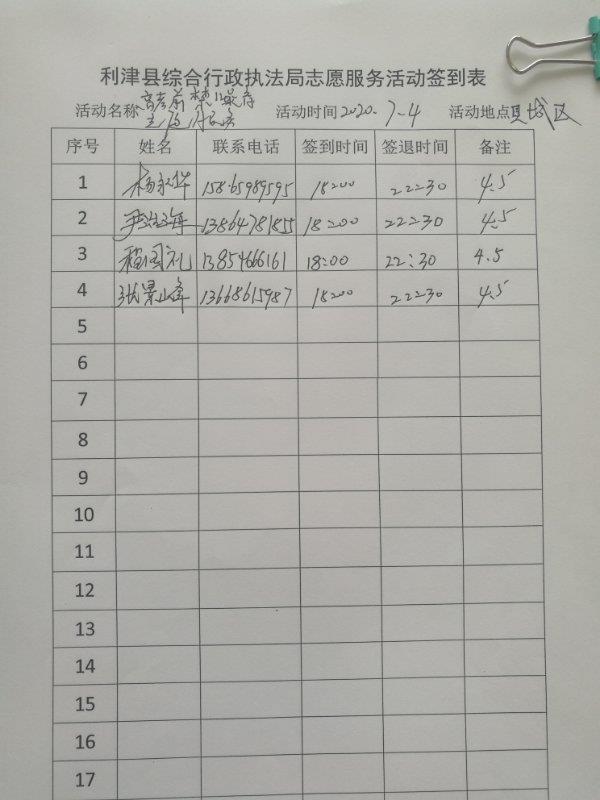 利津县综合行政执法局志愿服务活动签到表
活动名称 高考前禁噪音 活动时间 2020.7-4 活动地点 县城区
序号 姓名 联系电话 签到时间 签退时间 备注
1 杨永华 15865989595 18:00 22:30 4.5
2 13864781855 18:00 22:30 4.5
3 程国礼 13854666161 18:00 22:30 4.5
4 张景山 13668615987 18:00 22:30 4.5
5
6
7
8
9
10
11
12
13
14
15
16
17